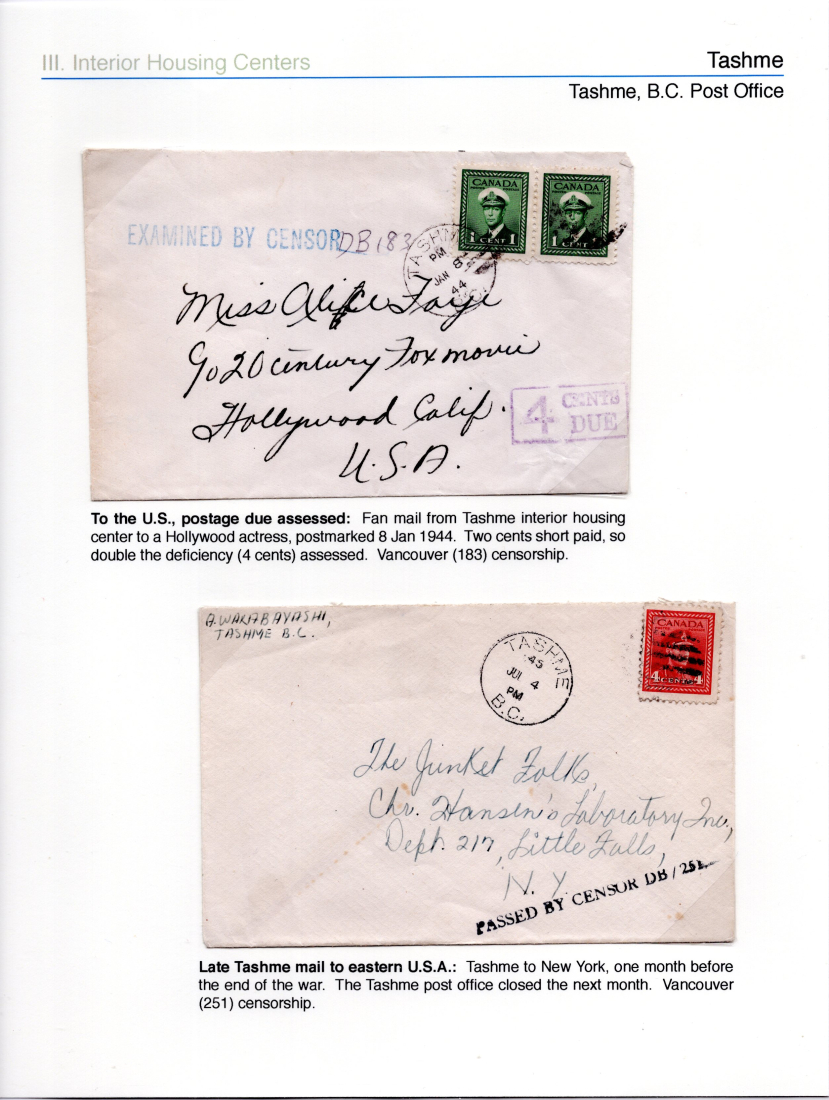 III. Interior Housing Centers
Tashme
Tashme, B.C. Post Office
CANADA
1 CENT 1
CANADA
1 CENT 1
EXAMINED BY CENSOR DB 183
TASHME
PM
8
JAN
44
Miss Alice Faye
℅ 20 century Fox movie
Hollywood Calif.
U.S.A.
4 CENTS
DUE
To the U.S., postage due assessed: Fan mail from Tashme interior housing
center to a Hollywood actress, postmarked 8 Jan 1944. Two cents short paid, so
double the deficiency (4 cents) assessed. Vancouver (183) censorship.
A. WAKABAYASHI,
TASHME B.C.
TASHME
45
JUL 4
PM
B.C.
CANADA
4 CENTS 4
The Junket Folks,
Chr. Hansen's Laboratory Inc.,
Dept. 217, Little Falls,
N.Y.
PASSED BY CENSOR DB / 251
Late Tashme mail to eastern U.S.A.: Tashme to New York, one month before
the end of the war. The Tashme post office closed the next month. Vancouver
(251) censorship.